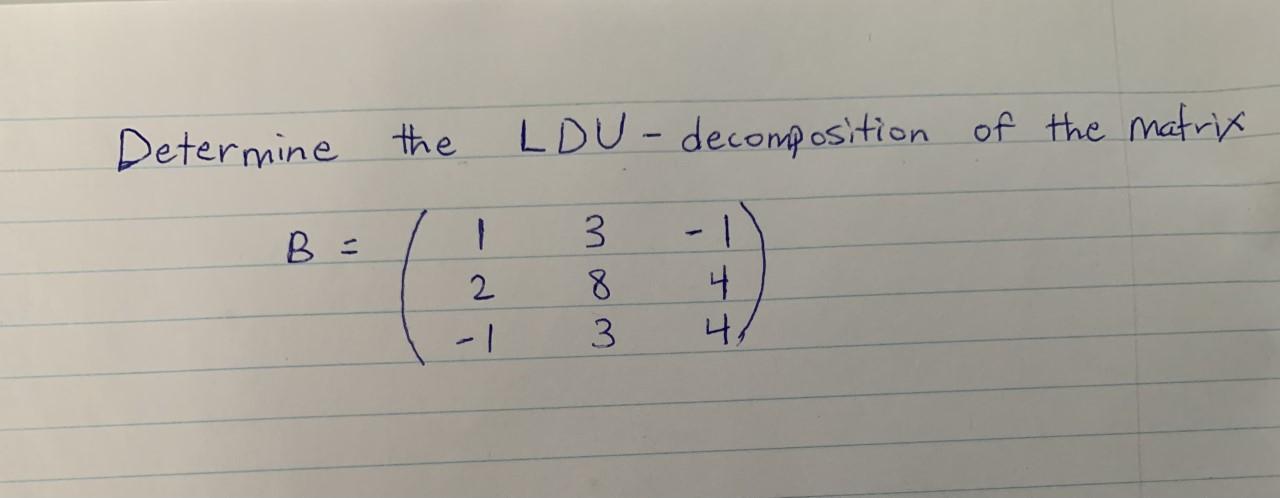 Determine the LDU - decomposition of the matrix
B = ( 1 3 -1
2 8 4
-1 3 4 )